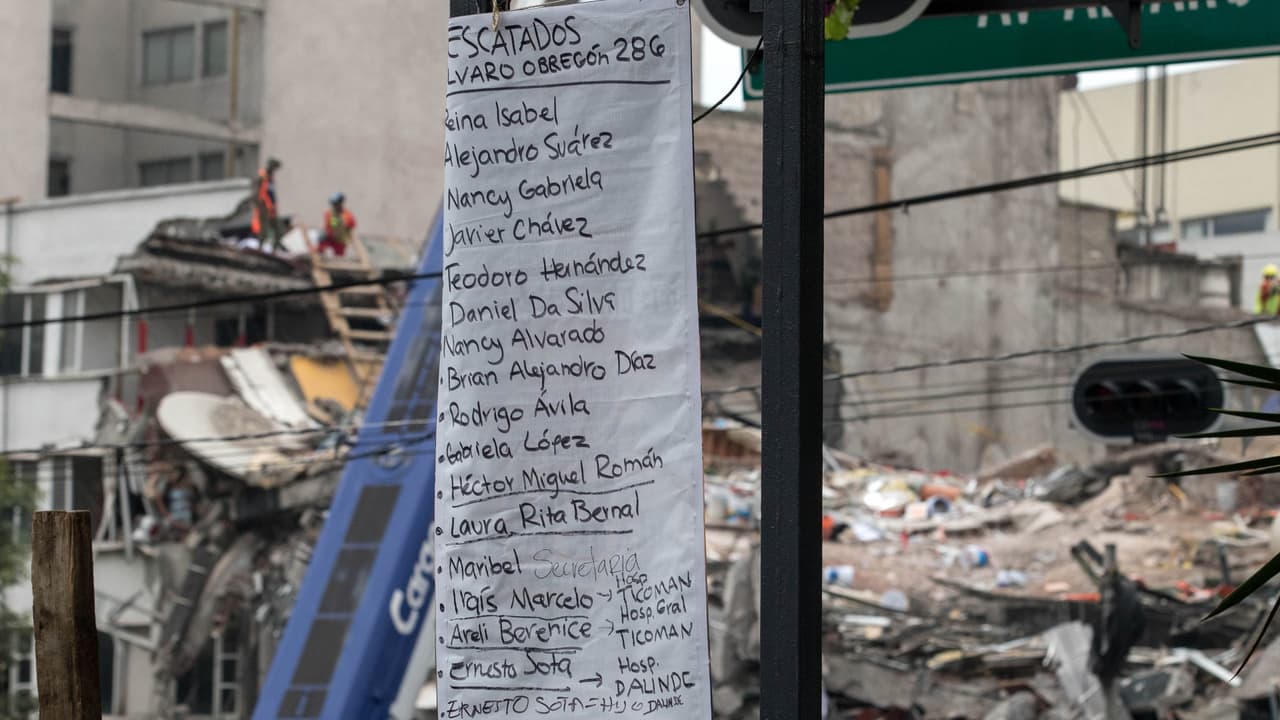 ESCATADOS
LVARO OBREGÓN 286
Reina Isabel
Alejandro Suárez
Nancy Gabriela
Javier Chávez
Teodoro Hernández
Daniel Da Silva
Nancy Alvarado
• Brian Alejandro Díaz
• Rodrigo Ávila
• Gabriela López
• Héctor Miguel Román
• Laura Rita Bernal
• Maribel Secretaria
• Irais Marcelo → Hosp. TICOMAN
• Areli Berenice → Hosp. Gral TICOMAN
Ernesto Sota → Hosp. DALINDE
• ERNESTO SOTA = Hijo DALINDE